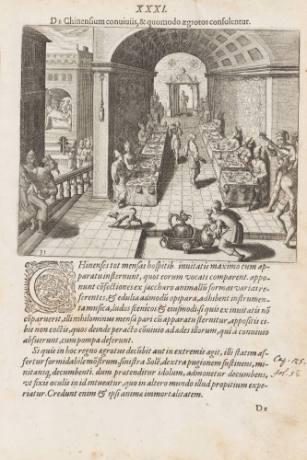 XXXI.
DE Chinensium conuiuiis, & quomodo ægrotos consolentur.
31
CHinenses tot mensas hospitib. inuitatis maximo cum ap-
paratu insternunt, quot eorum vocati comparent. appo-
nunt cõfectiones ex saccharo animaliũ formas varias re-
ferentes, & edulia admodũ opipara, adhibent instrumen-
ta musica, ludos scenicos & eiusmodi. si quis ex inuitatis nõ
cõparuerit, illi nihilominus mensa pari cũ apparatu sternitur, appositis ci-
bis non coctis, quos deinde peracto cõuiuio ad ædes illorum, qui à conuiuio
absuerunt, cum pompa deferunt.
Si quis in hoc regno ægrotus decũbit aut in extremis agit, illi statim af-
fertur formidabile mõstrum, sinistra Solẽ, dextra pugionem sustinens, mi-
nitansq, decumbenti. dum prætenditur idolum, admonetur decumbens,
vt fixis oculis in id intueatur, quo in altero mundo illud propitium expe-
riatur. Credunt enim & ipsi anima immortalitatem.
DE